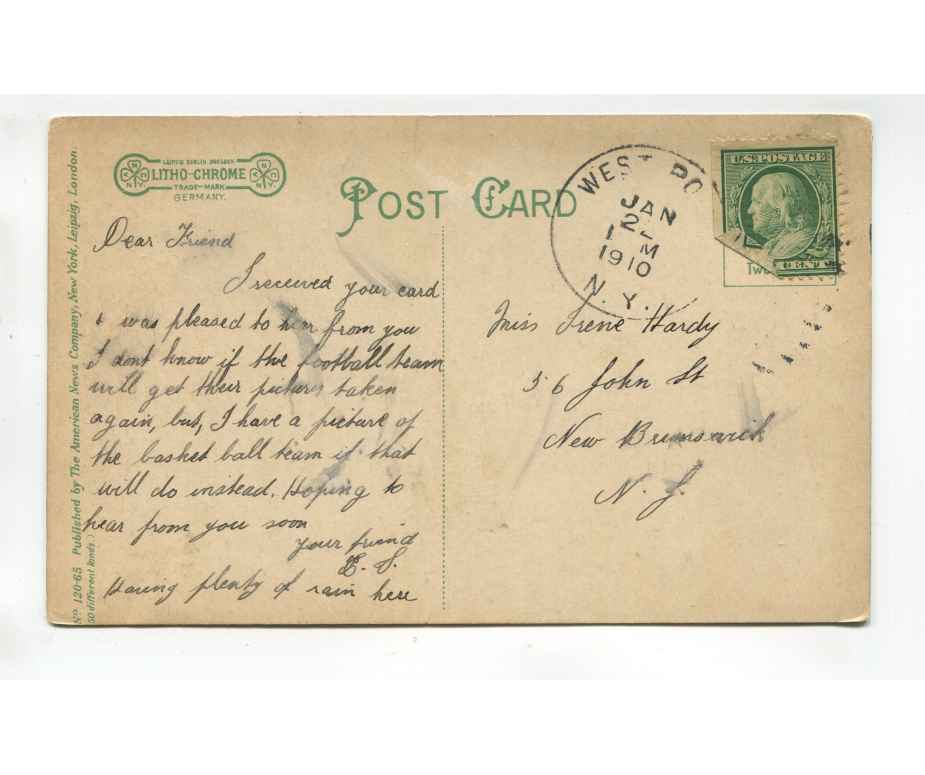 LEIPZIG BERLIN DRESDEN
LITHO-CHROME
TRADE-MARK
GERMANY.
POST CARD
WEST PO
JAN
1910
N. Y.
U.S. POSTAGE
CENT
Two
Dear Friend
I received your card
& was pleased to hear from you
I dont know if the football team
will get their pictures taken
again, but, I have a picture of
the basket ball team if that
will do instead. Hoping to
hear from you soon
your friend
E. S.
Having plenty of rain here
Miss Irene Hardy
56 John St
New Brunswick
N. J.
No. 120-65 Published by The American News Company, New York, Leipzig, London.
50 different kinds.)